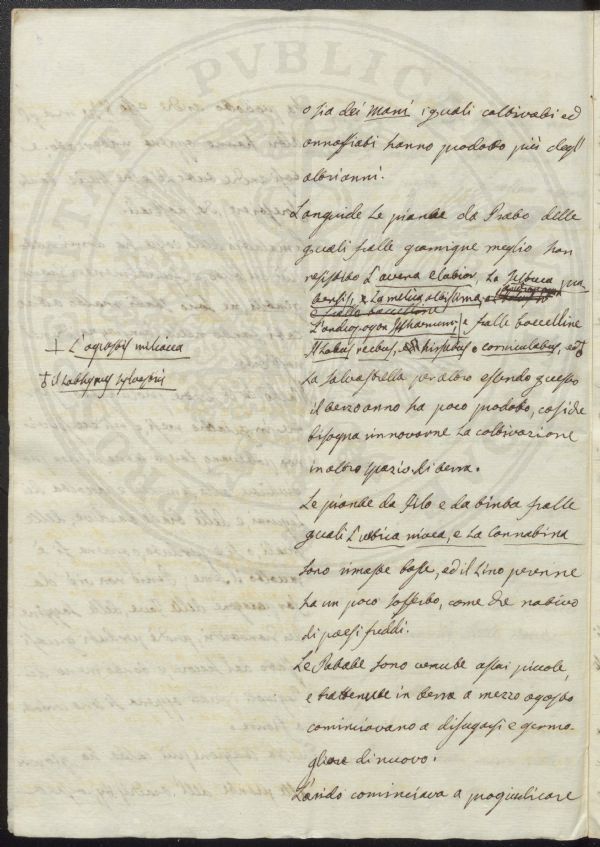 o sia dei Mani i quali coltivati ed
annaffiati hanno prodotto più degl'
altri anni.
Languide Le piante da Prato delle
quali fralle gramigne meglio han
resistito L'avena elatior, La festuca pra
tensis, La melica altissima, e
L'andropogon Ischaemum, e fralle baccelline
Il Lotus rectus, hirsutus e corniculatus, ed
⊥ L'agrostis miliacea
♁ il Lathyrus sylvestris
La salvastrella per altro essendo questo
il terzo anno ha poco prodotto, cosiche
bisogna rinnovarne La coltivazione
in altro spazio di terra.
Le piante da filo e da tinta fralle
quali L'urtica nivea, e La Cannabina
sono rimaste basse, ed il Lino perenne
ha un poco sofferto, come che nativo
di paesi freddi.
Le Patate sono venute assai piccole,
e trattenute in terra a mezzo agosto
cominciavano a disugarsi e germo-
gliare di nuovo.
L'arido cominciava a pregiudicare
PUBLICA